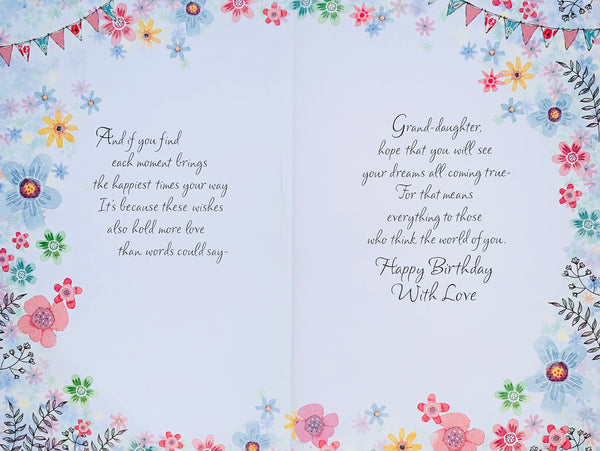 And if you find
each moment brings
the happiest times your way
It's because these wishes
also hold more love
than words could say-
Grand-daughter,
hope that you will see
your dreams all coming true-
For that means
everything to those
who think the world of you.
Happy Birthday
With Love